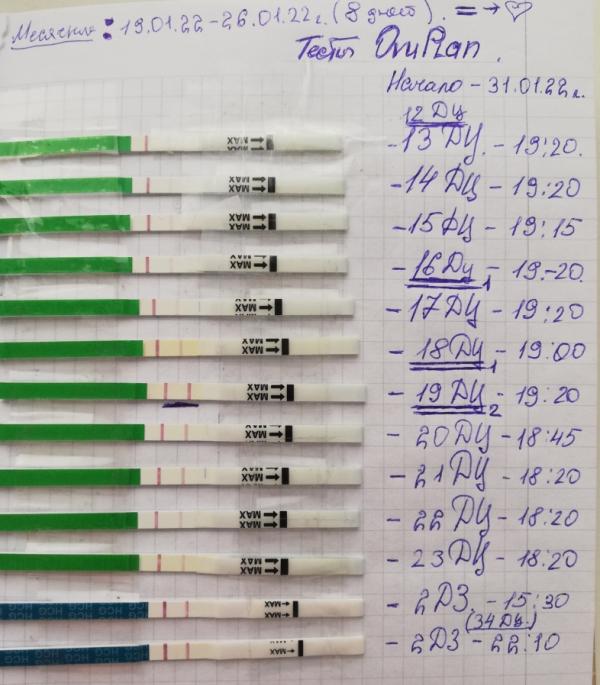 Месячные: 19.01.22-26.01.22г. (8 дней). = → ♡
Тесты OvuPlan.
Начало - 31.01.22г.
12 ДЦ
MAX
-13 ДЦ. - 19:20.
MAX
-14 ДЦ - 19:20
MAX
-15 ДЦ - 19:15
MAX
-16 ДЦ 1 - 19-20.
MAX
-17 ДЦ - 19:20
MAX
- 18 ДЦ 1 - 19:00
MAX
- 19 ДЦ 2 - 19:20
MAX
- 20 ДЦ - 18:45
MAX
- 21 ДЦ - 18:20
MAX
- 22 ДЦ - 18:20
MAX
- 23 ДЦ - 18:20
HCG MAX
- 2 ДЗ. - 15:30
(34 ДЦ.)
HCG MAX
- 2 ДЗ - 22:10